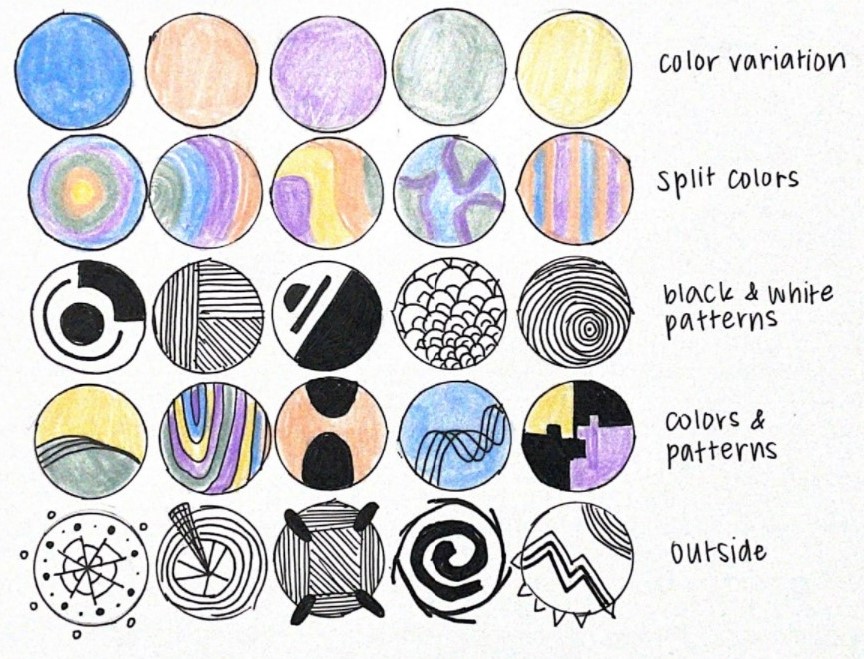 color variation
split colors
black & white
patterns
colors &
patterns
outside